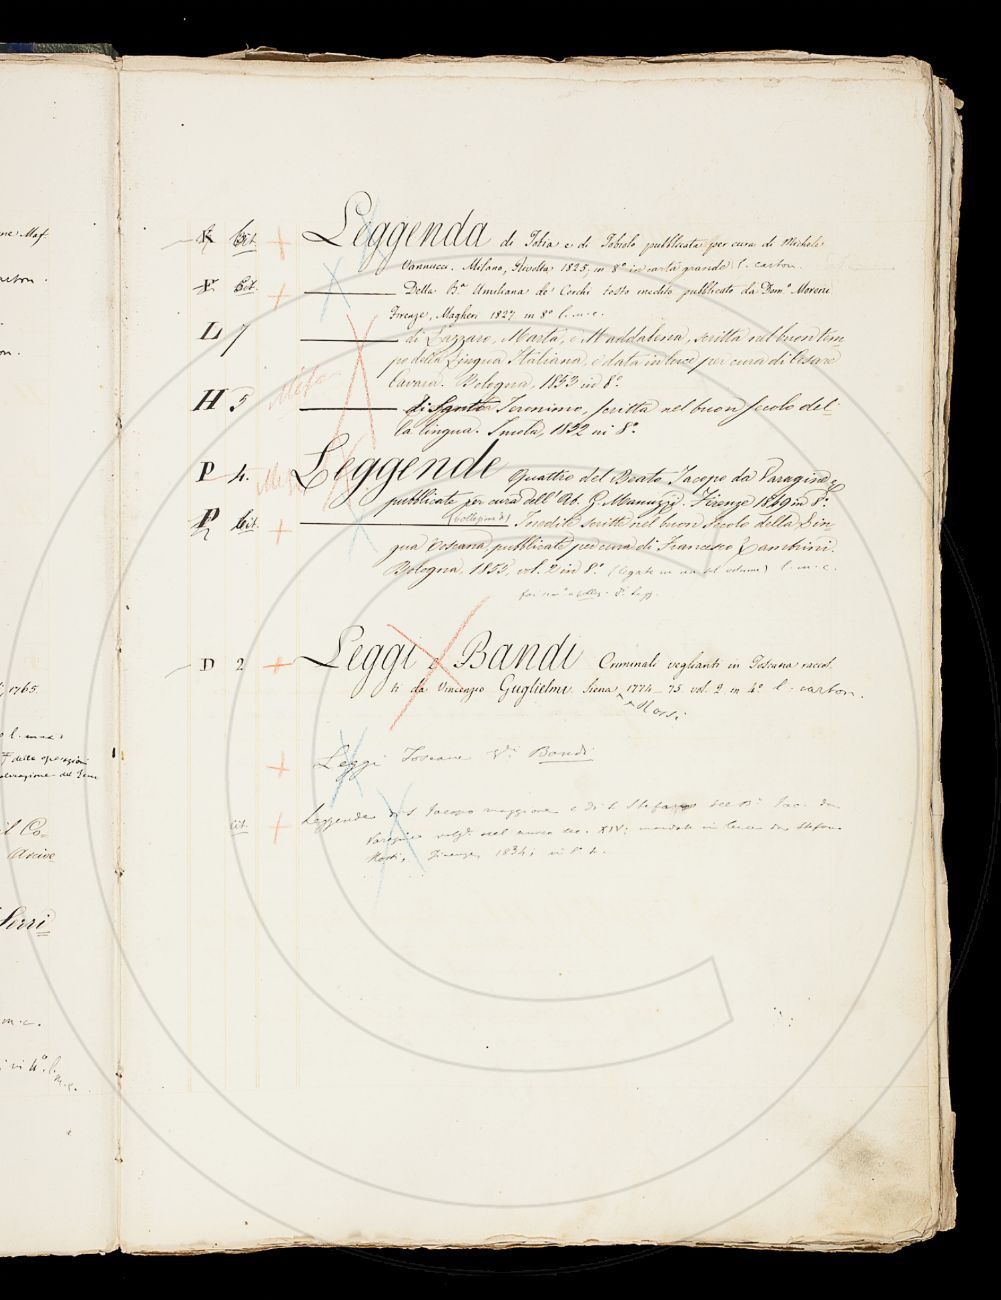 ne Maf.
K Cit. + Leggenda di Tobia e di Tobiolo pubblicata per cura di Michele
Vannucci. Milano, Rivolta 1825, in 8° in carta grande l. carton.
F Cit. + ——— Della B.ª Umiliana de' Cerchi testo inedito pubblicato da Dom.º Moreni
Firenze, Magheri 1827 in 8° l. m. c.
L 7 ——— di Lazzaro, Marta, e Maddalena, scritta nel buon tem
po della Lingua Italiana, e data in luce per cura di Cesare
Cavara. Bologna, 1853 in 8°.
H 5 ——— di Santo Ieronimo, scritta nel buon secolo del
la lingua. Imola, 1852 in 8°.
P 4. Leggende Quattro del Beato Jacopo da Varagine
pubblicate per cura dell'Ab. G. Manuzzi. Firenze 1849 in 8°.
P Cit. + ——— (collezione di) Inedite scritte nel buon secolo della Lin
gua Toscana, pubblicate per cura di Francesco Zambrini.
Bologna, 1855, vol. 2 in 8°. (legate in un sol volume) l. m. c.
D 2 + Leggi e Bandi Criminali veglianti in Toscana raccol
ti da Vincenzo Guglielmo Siena 1774-75. vol. 2 in 4° l. carton.
Rossi
+ Leggi Toscane V. Bandi
Cit. + Leggende di S. Jacopo maggiore e di S. Stefano del B. Jac. da
Varagine volg. nel sec. XIV: mandate in luce da Stefano
Rossi, Firenze, 1834, in 8°
1765
il Co-
Serri
m. c.
in 4° l.
m. c.